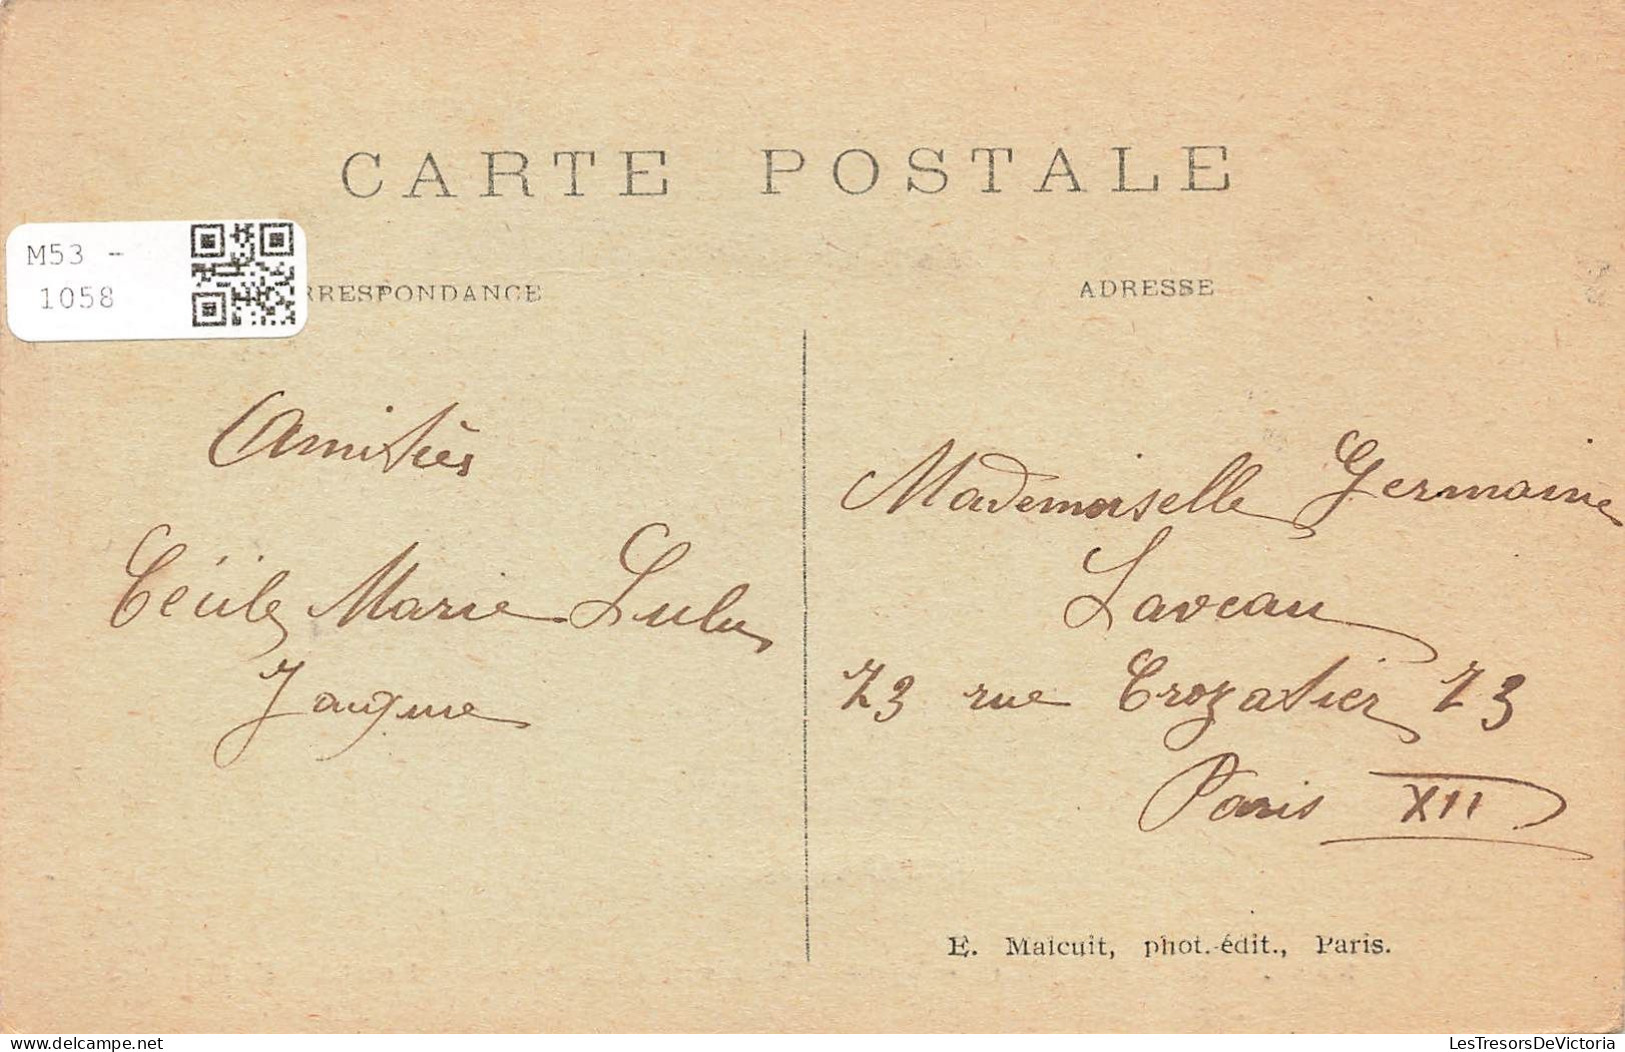 CARTE POSTALE
M53 -
1058
RRESPONDANCE
ADRESSE
Amitiès
Cécile Marie Lulu
Jacque
Mademoiselle Germaine
Laveau
73 rue Crozatier 73
Paris XII
E. Malcuit, phot.-édit., Paris.
LesTresorsDeVictoria
delcampe.net